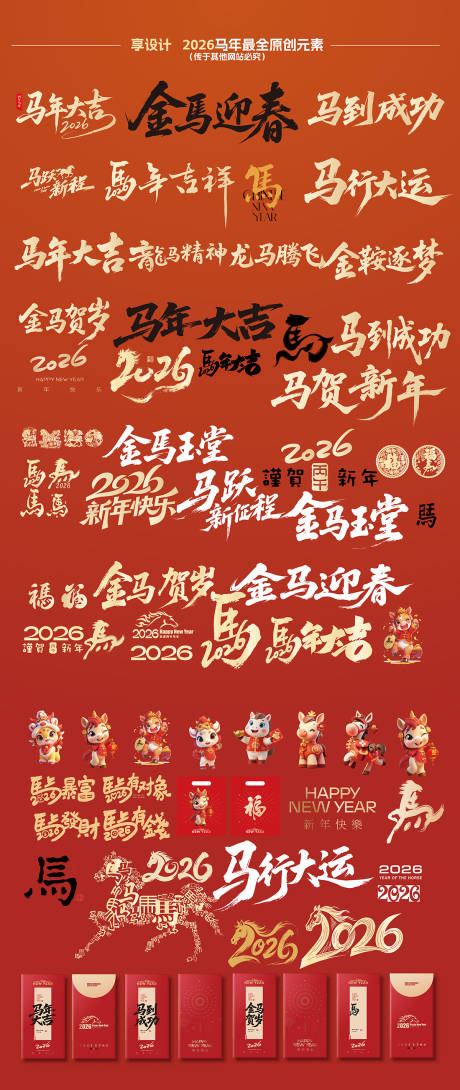 享设计 2026马年最全原创元素
(传于其他网站必究)
马年大吉
2026
金馬迎春
马到成功
马跃
新程
馬年吉祥
馬
CHINESE
NEW
YEAR
马行大运
马年大吉
龍马精神
龙马腾飞
金鞍逐梦
金马贺岁
2026
HAPPY NEW YEAR
新年快乐
马年大吉
2026
馬年大吉
馬
马到成功
马贺新年
金马玉堂
2026
新年快乐
马跃
新征程
2026
謹賀
新年
福
金马玉堂
馬
福
福
金马贺岁
金马迎春
2026
謹賀
新年
馬
2026 Happy New Year
2026
馬
2026
馬年大吉
馬上暴富
馬上有对象
馬上發財
馬上有錢
福
HAPPY
NEW YEAR
新年快樂
馬
馬
2026
马行大运
2026
YEAR OF THE HORSE
2026
2026
2026
马年
大吉
2026
2026
马到
成功
2026
金马
贺岁
2026
馬
2026